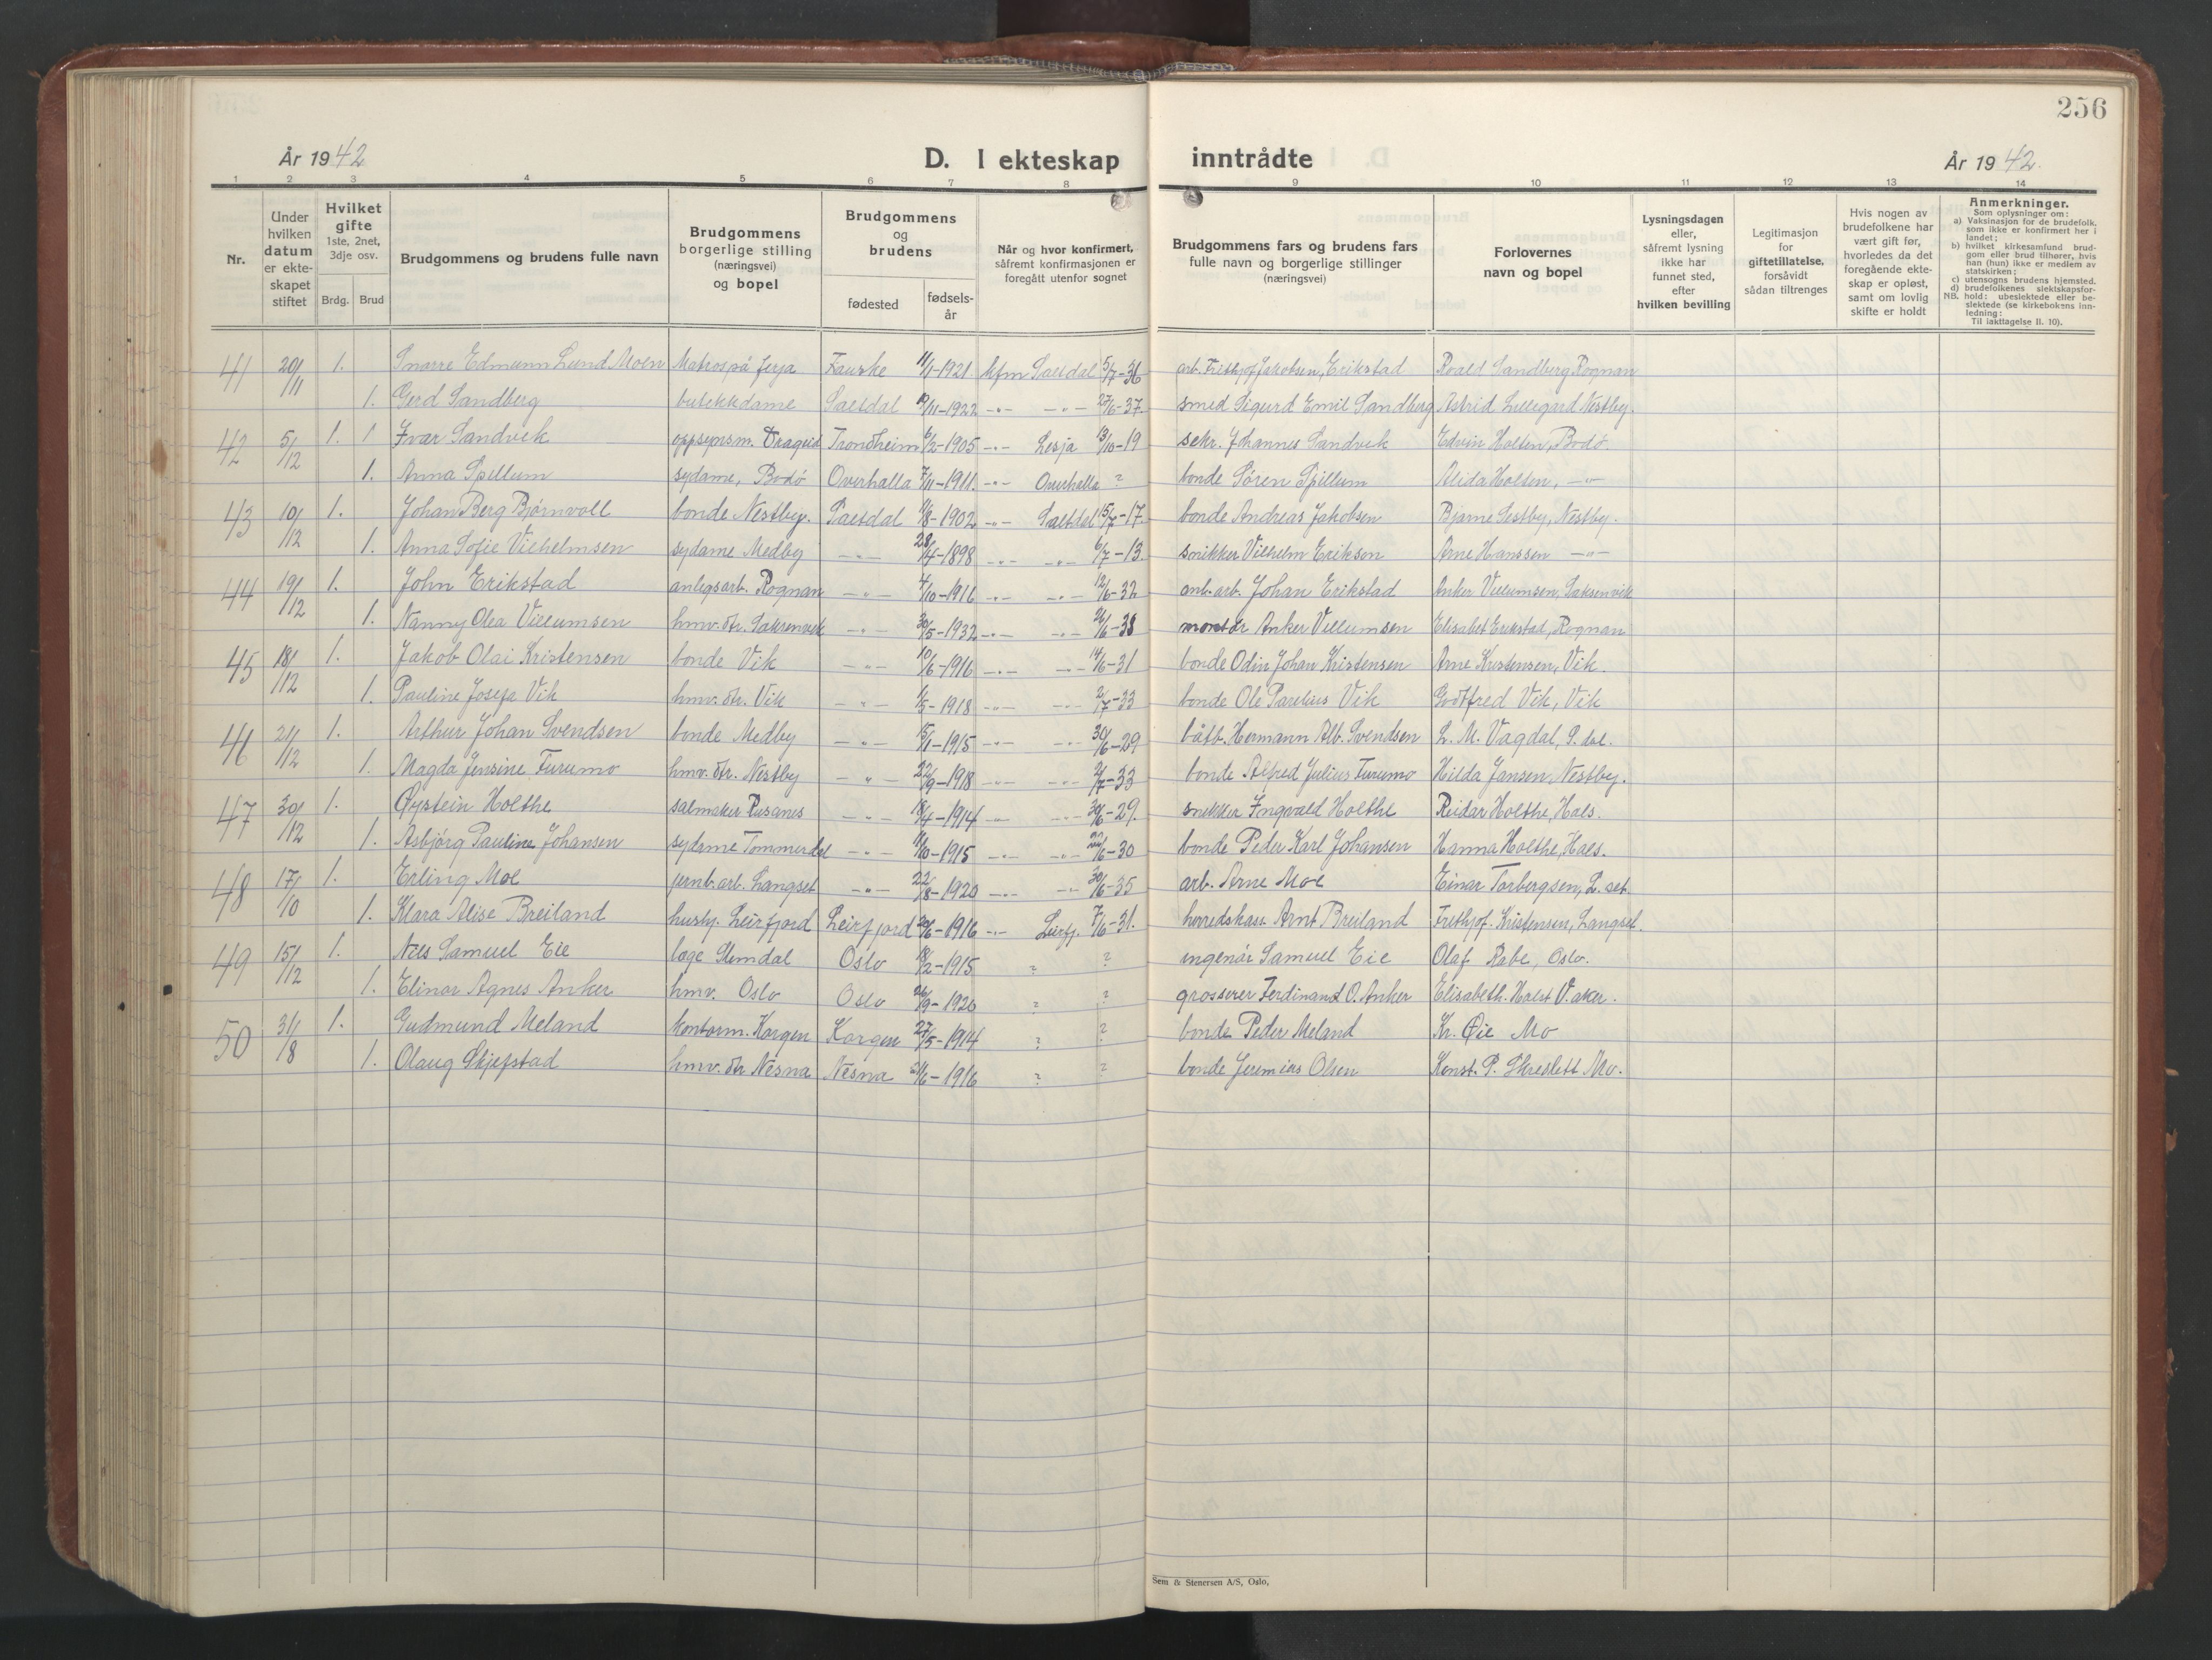 256
År 1942 D. I ekteskap inntrådte År 1942.
1 2 3 4 5 6 7 8 9 10 11 12 13 14
Nr.
Under hvilken datum er ekte- skapet stiftet
Hvilket gifte 1ste, 2net, 3dje osv.
Brdg. Brud
Brudgommens og brudens fulle navn
Brudgommens borgerlige stilling (næringsvei) og bopel
Brudgommens og brudens
fødested fødsels- år
Når og hvor konfirmert, såfremt konfirmasjonen er foregått utenfor sognet
Brudgommens fars og brudens fars fulle navn og borgerlige stillinger (næringsvei)
Forlovernes navn og bopel
Lysningsdagen eller, såfremt lysning ikke har funnet sted, efter hvilken bevilling
Legitimasjon for giftetillatelse, forsåvidt sådan tiltrenges
Hvis nogen av brudefolkene har vært gift før, hvorledes da det foregående ekte- skap er opløst, samt om lovlig skifte er holdt
Anmerkninger.
Som oplysninger om:
a) Vaksinasjon for de brudefolk, som ikke er konfirmert her i landet;
b) hvilket kirkesamfund brud- gom eller brud tilhører, hvis han (hun) ikke er medlem av statskirken;
c) utensogns brudens hjemsted.
d) brudefolkenes slektskapsfor- hold: ubeslektede eller be- slektede (se kirkebokens inn- ledning:
NB. Til iakttagelse II. 10).
41 20/11 1. Snorre Edmunn Lund Moen Matros på ferja Fauske 11/1-1921 kfm Saltdal 5/7-36 arb. Frithjof Jakobsen, Erikstad Roald Sandberg Rognan
1. Gerd Sandberg butikkdame Saltdal 12/11-1922 -"- -"- 27/6-37. smed Sigurd Emil Sandberg Astrid Lillegard Nestby.
42 5/12 1. 1 Ivar Sandvik oppsynsm. Dragvid Trondheim 6/2-1905 -"- Lesja 13/10-19 sekr. Johannes Sandvik Edvin Holten, Bodø.
1. Anna Spillum sydame, Bodø Overhalla 7/11-1911. -"- Overhalla ? bonde Søren Spillum Alida Holten, -"-
43 10/12 1. Johan Berg Bjørnvoll bonde Nestby. Saltdal 11/8-1902 -"- Saltdal 15/7-17. bonde Andreas Jakobsen Bjarne Sestby, Nestby.
1. Anna Sofie Vilhelmsen sydame Medby -"- 28/4-1898 -"- -"- 6/7-13 snikker Vilhelm Eriksen Arne Hanssen -"-
44 19/12 1. John Erikstad anlegsarb. Rognan -"- 4/10-1916 -"- -"- 12/6-32 anl.arb. Johan Erikstad Anker Villumsen, Saksenvik
1. Nanny Olea Villumsen hmv. dtr. Saksenvik -"- 30/5-1932 -"- -"- 26/6-38 montør Anker Villumsen Elisabet Erikstad, Rognan
45 18/12 1. Jakob Olai Kristensen bonde Vik -"- 10/6-1916 -"- -"- 14/6-31 bonde Odin Johan Kristensen Arne Kristensen, Vik.
1. Pauline Josefa Vik hmv. dtr. Vik -"- 1/5-1918 -"- -"- 2/7-33 bonde Ole Parelius Vik Godtfred Vik, Vik
46 21/12 1. Arthur Johan Svendsen bonde Medby -"- 15/1-1915 -"- -"- 30/6-29 båtb. Hermann Alb. Svendsen L. M. Vagdal, S.dal.
1. Magda Jensine Furumo hmv. dtr. Nestby -"- 22/9-1918 -"- -"- 2/7-33 bonde Alfred Julius Furumo Hilda Jansen, Nestby.
47 30/12 1. Øystein Holthe salmaker Rusanes -"- 18/4-1914 -"- -"- 30/6-29. snekker Ingvald Holthe Reidar Holthe, Hals.
1. Asbjørg Pauline Johansen sydame Tommerdal -"- 11/10-1915 -"- -"- 22/6-30 bonde Peder Karl Johansen Hanna Holthe, Hals.
48 17/10 1. Erling Moe jernb.arb. Langset -"- 22/8-1920 -"- -"- 30/6-35 arb. Arne Moe Einar Torbergsen, L.set.
1. Klara Alise Breiland hushj. Leirfjord Leirfjord 26/6-1916 -"- Leirfj. 7/6-31. herredskass. Arnt Breiland Frithjof Kristensen, Langset.
49 15/12 1. Nils Samuel Eie lege Slemdal Oslo 18/2-1915 ? ? ingeniør Samuel Eie Olaf Rabe, Oslo.
1. Elinor Agnes Anker hmv. Oslo Oslo 26/9-1920 ? ? grosserer Ferdinand O. Anker Elisabeth Holst V.aker.
50 31/8 1. Gudmund Meland kontorm. Korgen Korgen 27/5-1914 ? ? bonde Peder Meland Kr. Øie Mo
1. Olaug Skjefstad hmv. dtr Nesna Nesna 21/6-1916 ? ? bonde Jeremias Olsen Konst. P. Skreslett Mo.
Sem & Stenersen A/S, Oslo,